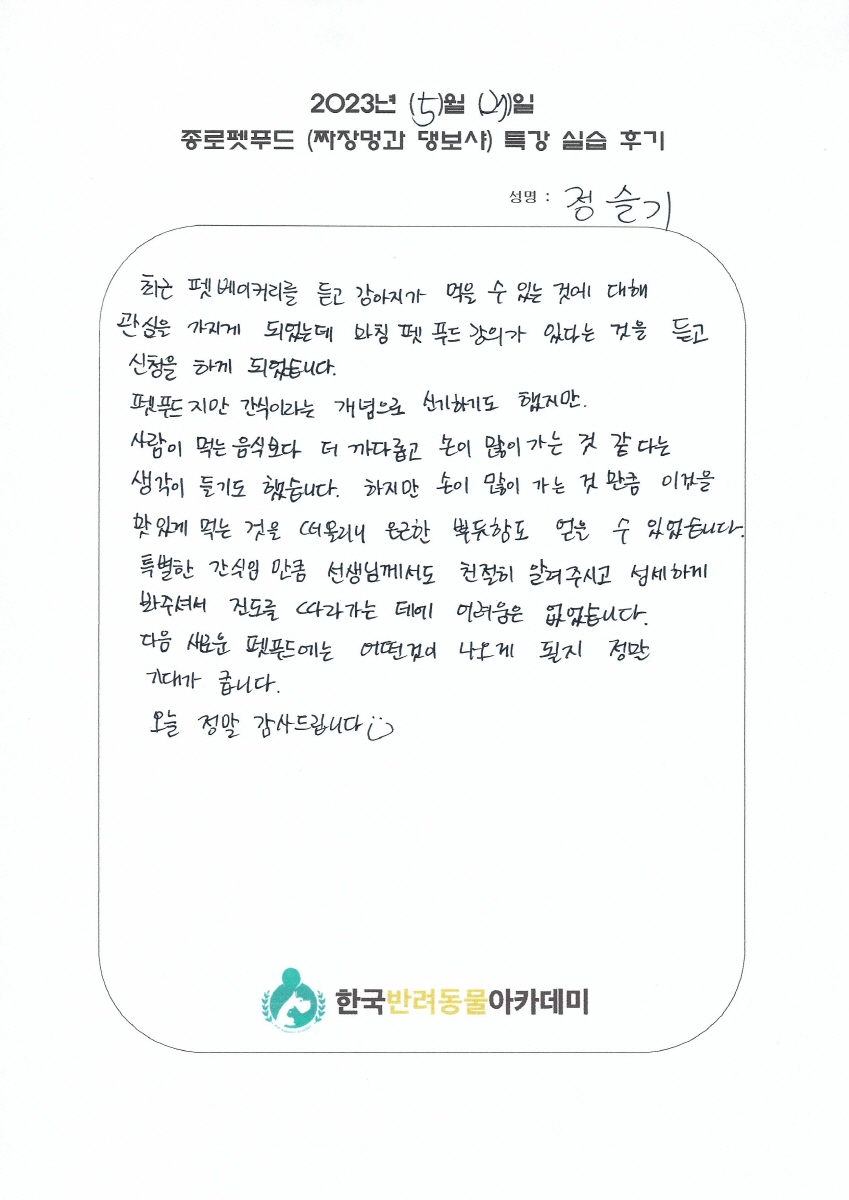 2023년 (5)월 ()일
종로펫푸드 (짜장멍과 댕보샤) 특강 실습 후기
성명 : 정슬기
최근 펫베이커리를 듣고 강아지가 먹을 수 있는 것에 대해
관심을 가지게 되었는데 마침 펫 푸드 강의가 있다는 것을 듣고
신청을 하게 되었습니다.
펫푸드지만 간식이라는 개념으로 신기하기도 했지만.
사람이 먹는 음식보다 더 까다롭고 손이 많이 가는 것 같다는
생각이 들기도 했습니다. 하지만 손이 많이 가는 것 만큼 이것을
맛있게 먹는 것을 떠올리니 은근한 뿌듯함도 얻을 수 있었습니다.
특별한 간식인 만큼 선생님께서도 친절히 알려주시고 섬세하게
봐주셔서 진도를 따라가는 데에 어려움은 없었습니다.
다음 새로운 펫푸드에는 어떤것이 나오게 될지 정말
기대가 큽니다.
오늘 정말 감사드립니다
한국반려동물아카데미